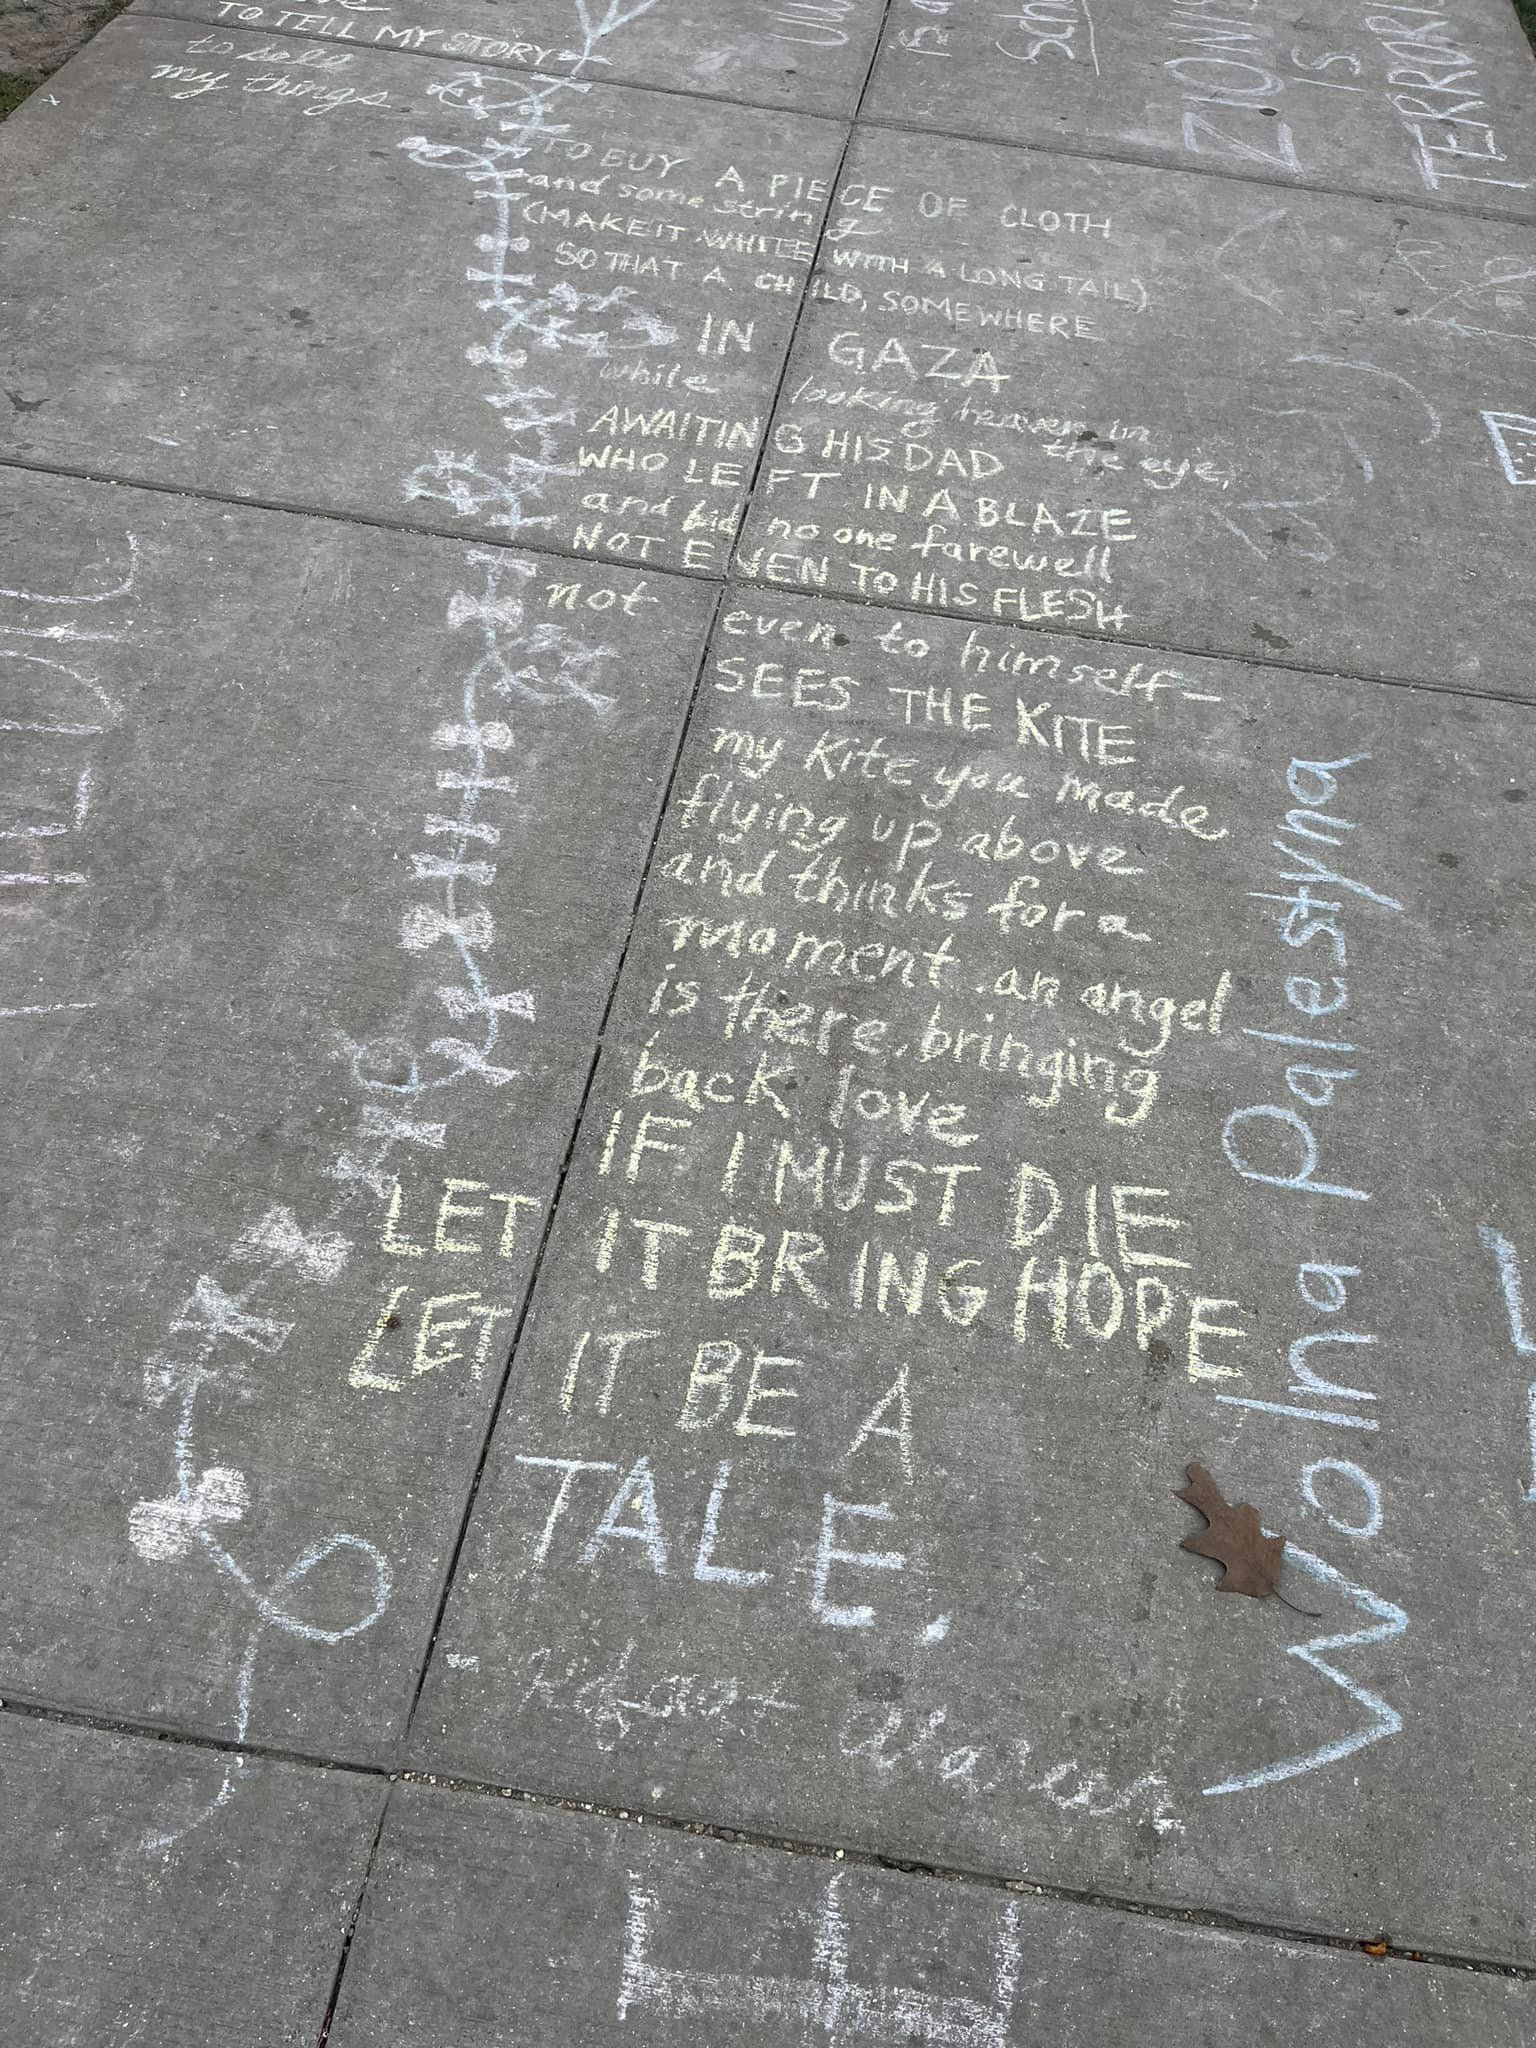 TO TELL MY STORY
to sell
my things
TO BUY A PIECE OF CLOTH
and some string
(MAKE IT WHITE WITH A LONG TAIL)
SO THAT A CHILD, SOMEWHERE
IN GAZA
while looking heaven in
the eye,
AWAITING HIS DAD
WHO LEFT IN A BLAZE
and bid no one farewell
NOT EVEN TO HIS FLESH
not even to himself—
SEES THE KITE
my Kite you made
flying up above
and thinks for a
moment an angel
is there, bringing
back love
IF I MUST DIE
LET IT BRING HOPE
LET IT BE A
TALE,
ZIONIS
IS
TERRORIS
Wolna Palestyna